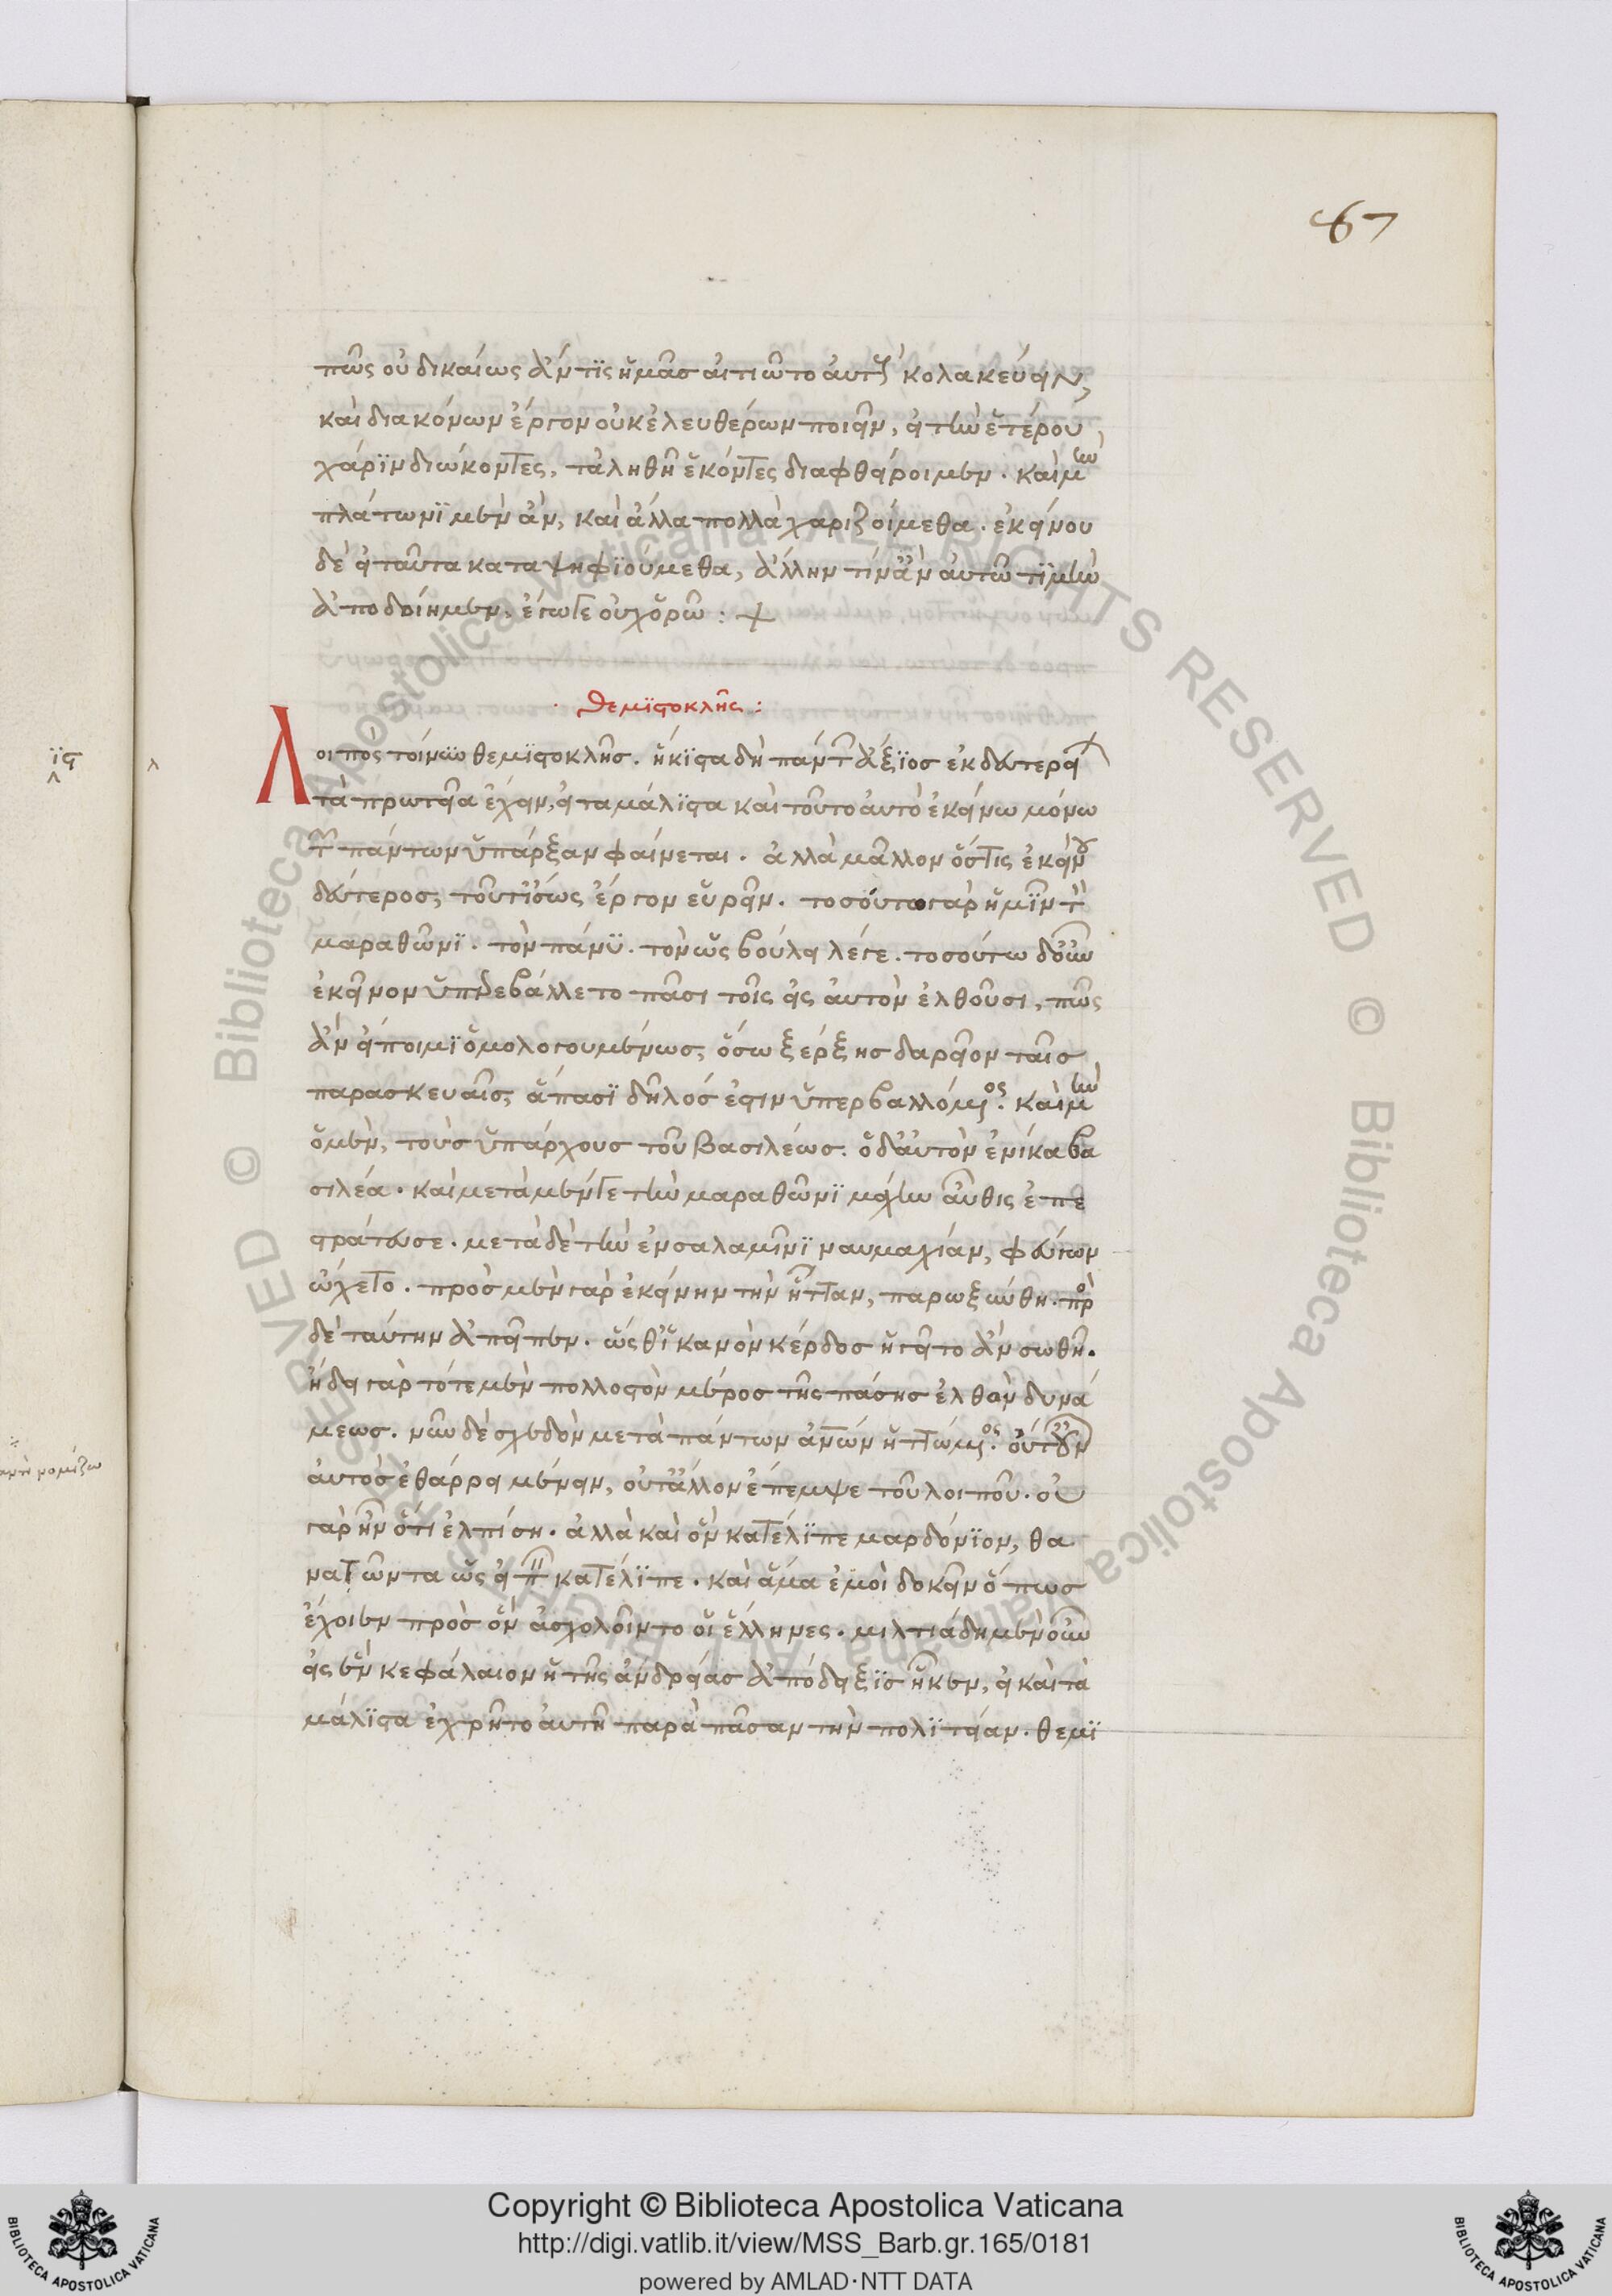 67
πῶς οὐ δικαίως ἄν τϊς ἡμᾶσ αἰτιῶτο αὐτοὺς κολακεύειν,
καὶ διακόνων ἔργον οὐκ ἐλευθέρων ποιεῖν, εἰ τὴν ἑτέρου
χάρϊν διώκοντες, τἀληθῆ ἑκόντες διαφθείροιμεν. καὶ μὴν
πλάτωνϊ μὲν ἂν, καὶ ἄλλα πολλὰ χαριζοίμεθα. ἐκείνου
δὲ εἰ ταῦτα καταψηφϊούμεθα, ἄλλην τίν' ἂν αὐτῶ τϊμὴν
ἀποδοίημεν, ἔγωγε οὐχ ὁρῶ :
θεμϊστοκλῆς :
Λοιπός τοίνυν θεμϊστοκλῆσ. ἥκϊστα δὴ πάντων ἄξϊοσ ἐκ δευτέρων
τὰ πρωτεῖα ἔχειν, εἰ τα μάλϊστα καὶ τοῦτο αὐτὸ ἐκείνω μόνω
τῶν πάντων ὑπάρξαν φαίνεται. ἀλλὰ μᾶλλον ὅστις ἐκείνου
δεύτερος, τοῦτ' ἴσως ἔργον εὑρεῖν. τοσούτω γὰρ ἡμῖν τὸν
μαραθῶνϊ. τὸν πάνϋ. τὸν ὡς βούλει λέγε. τοσούτω δ' οὖν
ἐκεῖνον ὑπερεβάλλετο πᾶσι τοῖς εἰς αὐτὸν ἐλθοῦσι, πῶς
ἂν εἴποιμϊ ὁμολογουμένως, ὅσω ξέρξησ δαρεῖον ταῖσ
παρασκευαῖς, ἅπασϊ δῆλός ἐστιν ὑπερβαλλόμενος. καὶ μὴν
ὁ μὲν, τοὺσ ὑπάρχουσ τοῦ βασιλέως. ὁ δ' αὐτὸν ἐνίκα βα
σιλέα. καὶ μετὰ μέν γε τὴν μαραθῶνϊ μάχην αὖθις ἐπε
στράτευσε. μετὰ δὲ τὴν ἐν σαλαμῖνϊ ναυμαχίαν, φεύγων
ᾤχετο. πρὸσ μὲν γὰρ ἐκείνην τὴν ἧτταν, παρωξύνθη. πρὸς
δὲ ταύτην ἀπεῖπεν. ὥσθ' ϊκανὸν κέρδοσ ἡγεῖτο ἂν σωθῆ.
ᾔδει γὰρ τότε μὲν πολλοστὸν μέροσ τῆς πάσησ ἐλθὸν δυνά
μεωσ. νῦν δὲ σχεδὸν μετὰ πάντων ἀνθρώπων ἡττώμενος. οὔτ' οὖν
αὐτὸσ ἐθάρρει μένειν, οὔτ' ἄλλον ἔπεμψε τοῦ λοιποῦ. οὐ
γὰρ ἦν ὅτι ἐλπίση. ἀλλὰ καὶ ὃν κατέλϊπε μαρδόνϊον, θα
νατῶντα ὡς εἰπεῖν κατέλϊπε. καὶ ἅμα ἐμοὶ δοκεῖν ὅπωσ
ἔχοιεν πρὸσ ὃν ἀσχολοῖντο οἱ ἕλληνες. μιλτιάδη μὲν οὖν
εἰς ἓν κεφάλαιον ἡ τῆς ἀνδρείασ ἀπόδειξϊσ ἧκεν, εἰ καὶ τὰ
μάλϊστα ἐχρῆτο αὐτῆ παρὰ πᾶσαν τὴν πολϊτείαν. θεμϊ
Copyright © Biblioteca Apostolica Vaticana
http://digi.vatlib.it/view/MSS_Barb.gr.165/0181
powered by AMLAD·NTT DATA